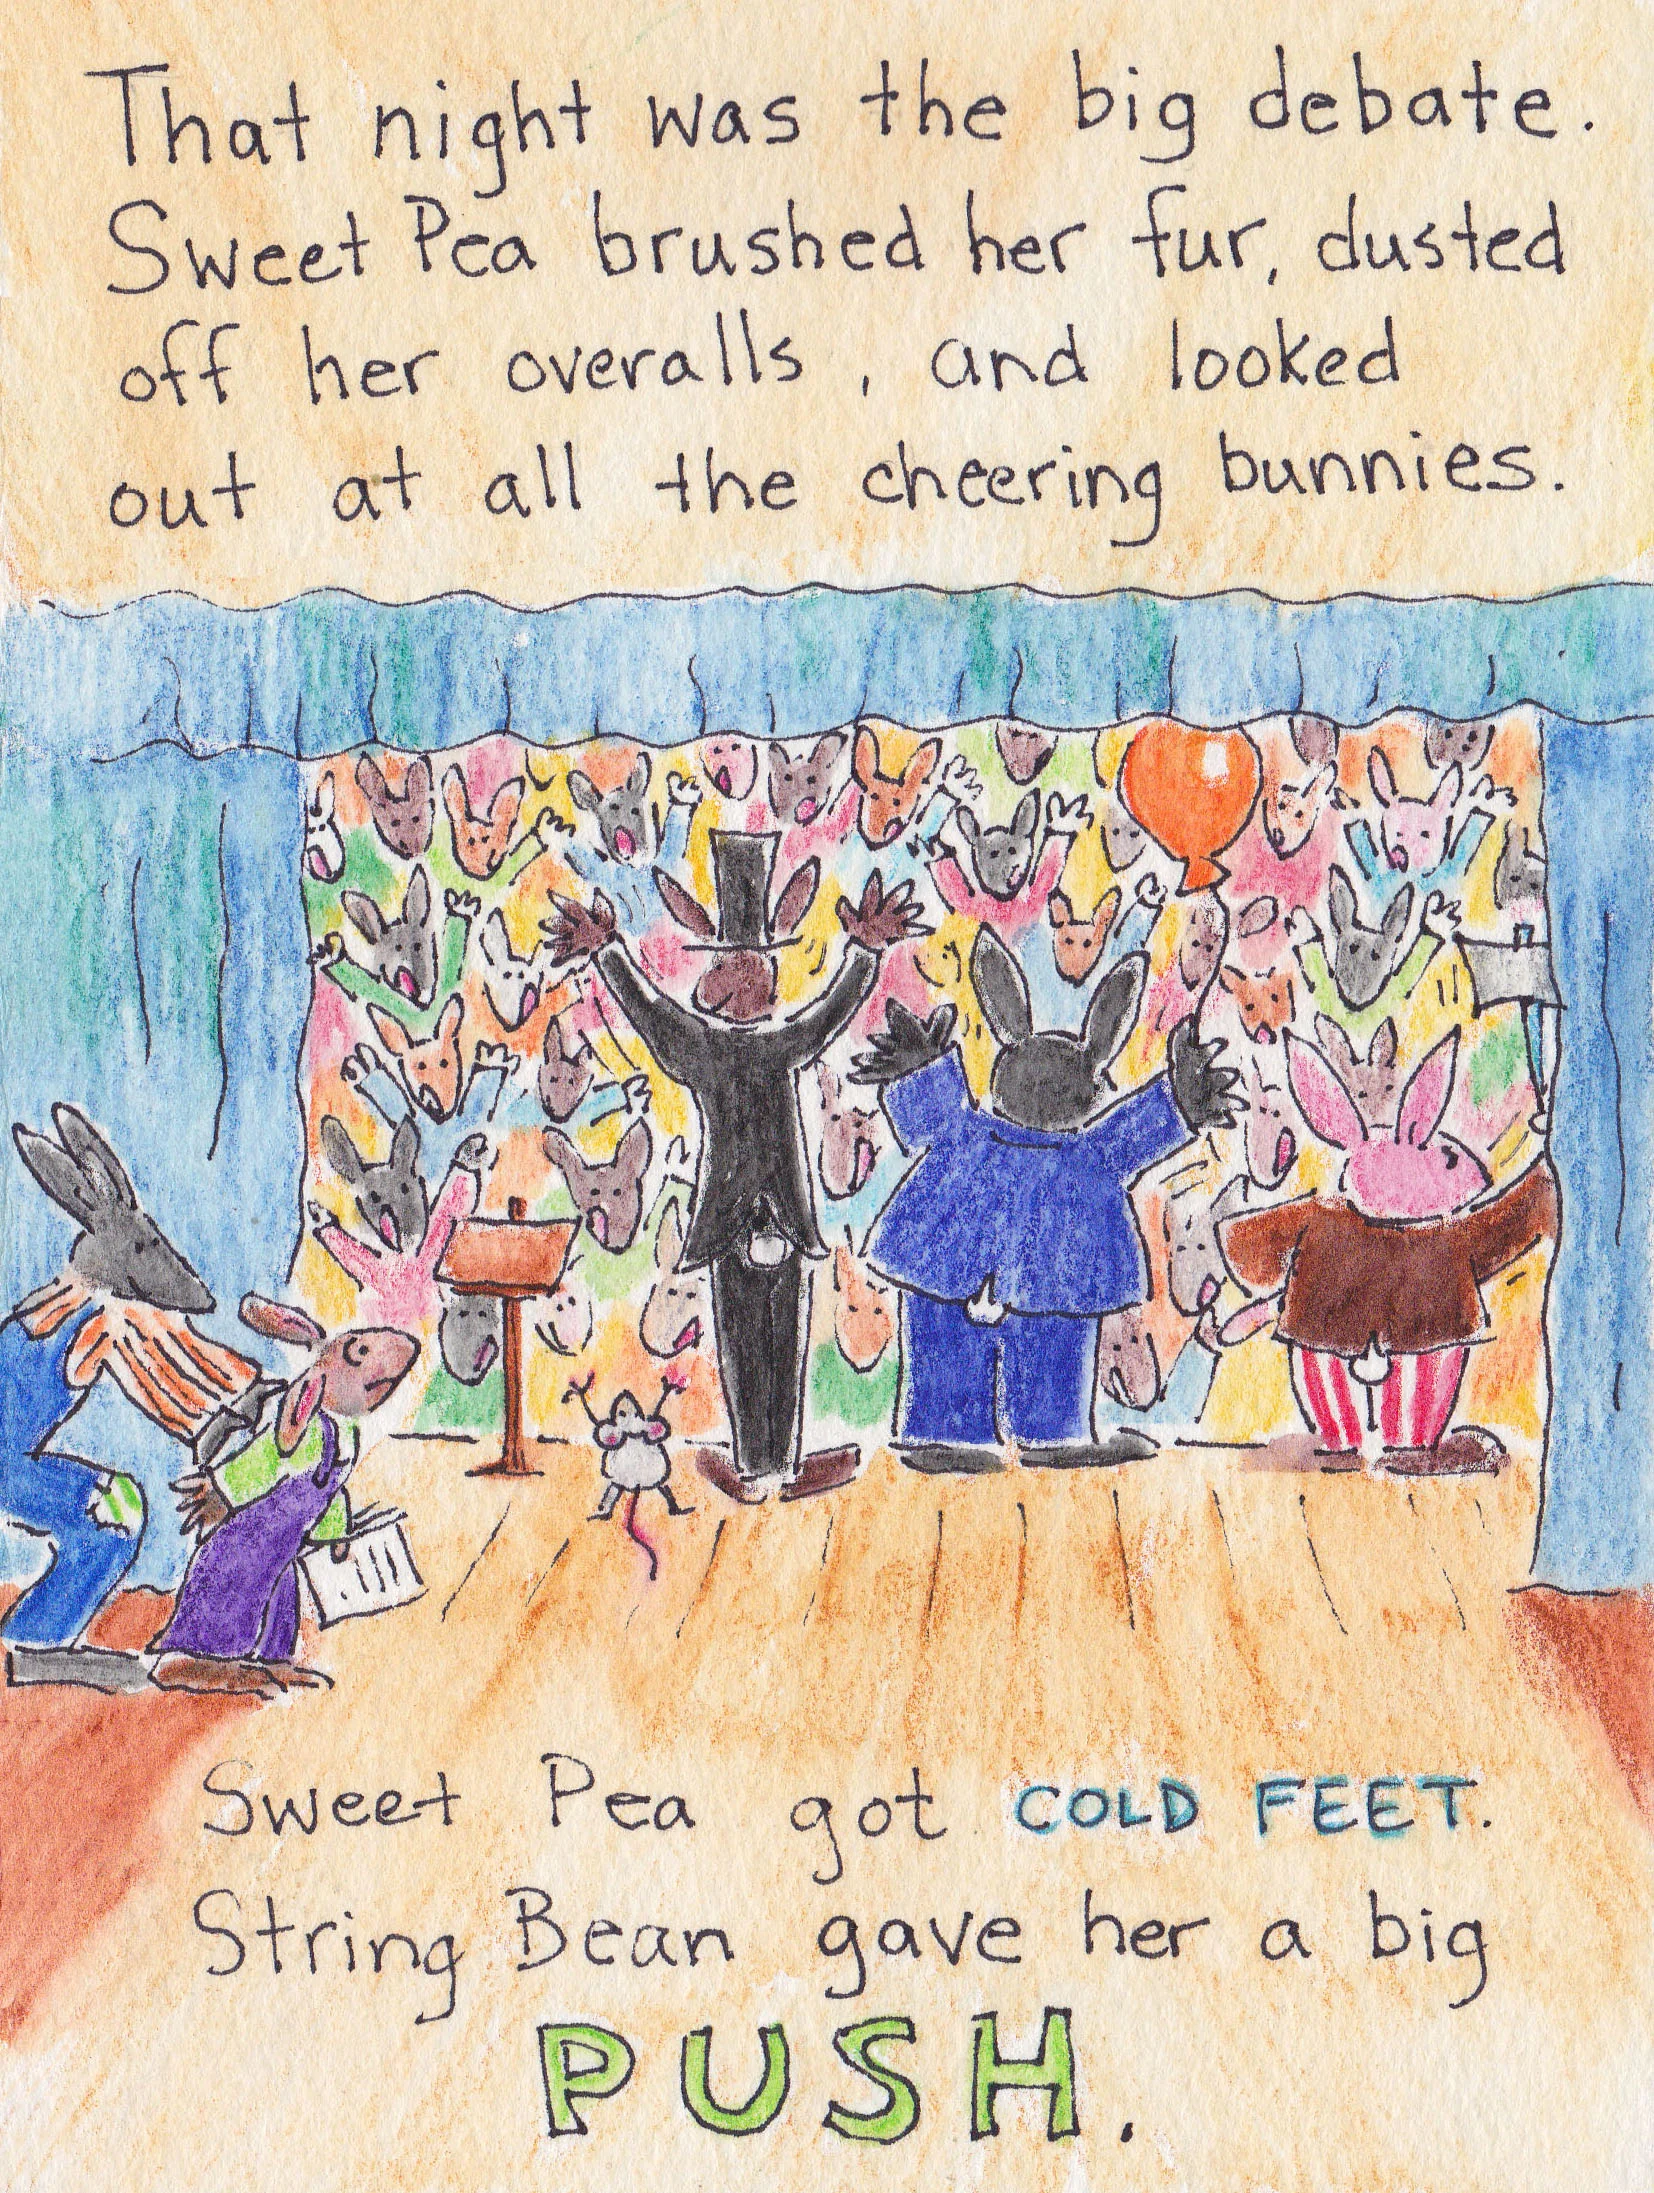 That night was the big debate.
Sweet Pea brushed her fur, dusted
off her overalls, and looked
out at all the cheering bunnies.
Sweet Pea got COLD FEET.
String Bean gave her a big
PUSH.